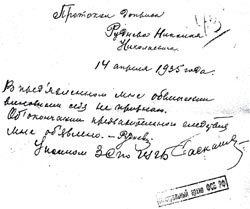 Протокол допроса
Руднева Николая
Николаевича.
14 апреля 1935 года.
В пред'явленном мне обвинении
виновным себя не признаю.
Об окончании предварительного следствия
мне объявлено. –
Центральный архив ФСБ РФ